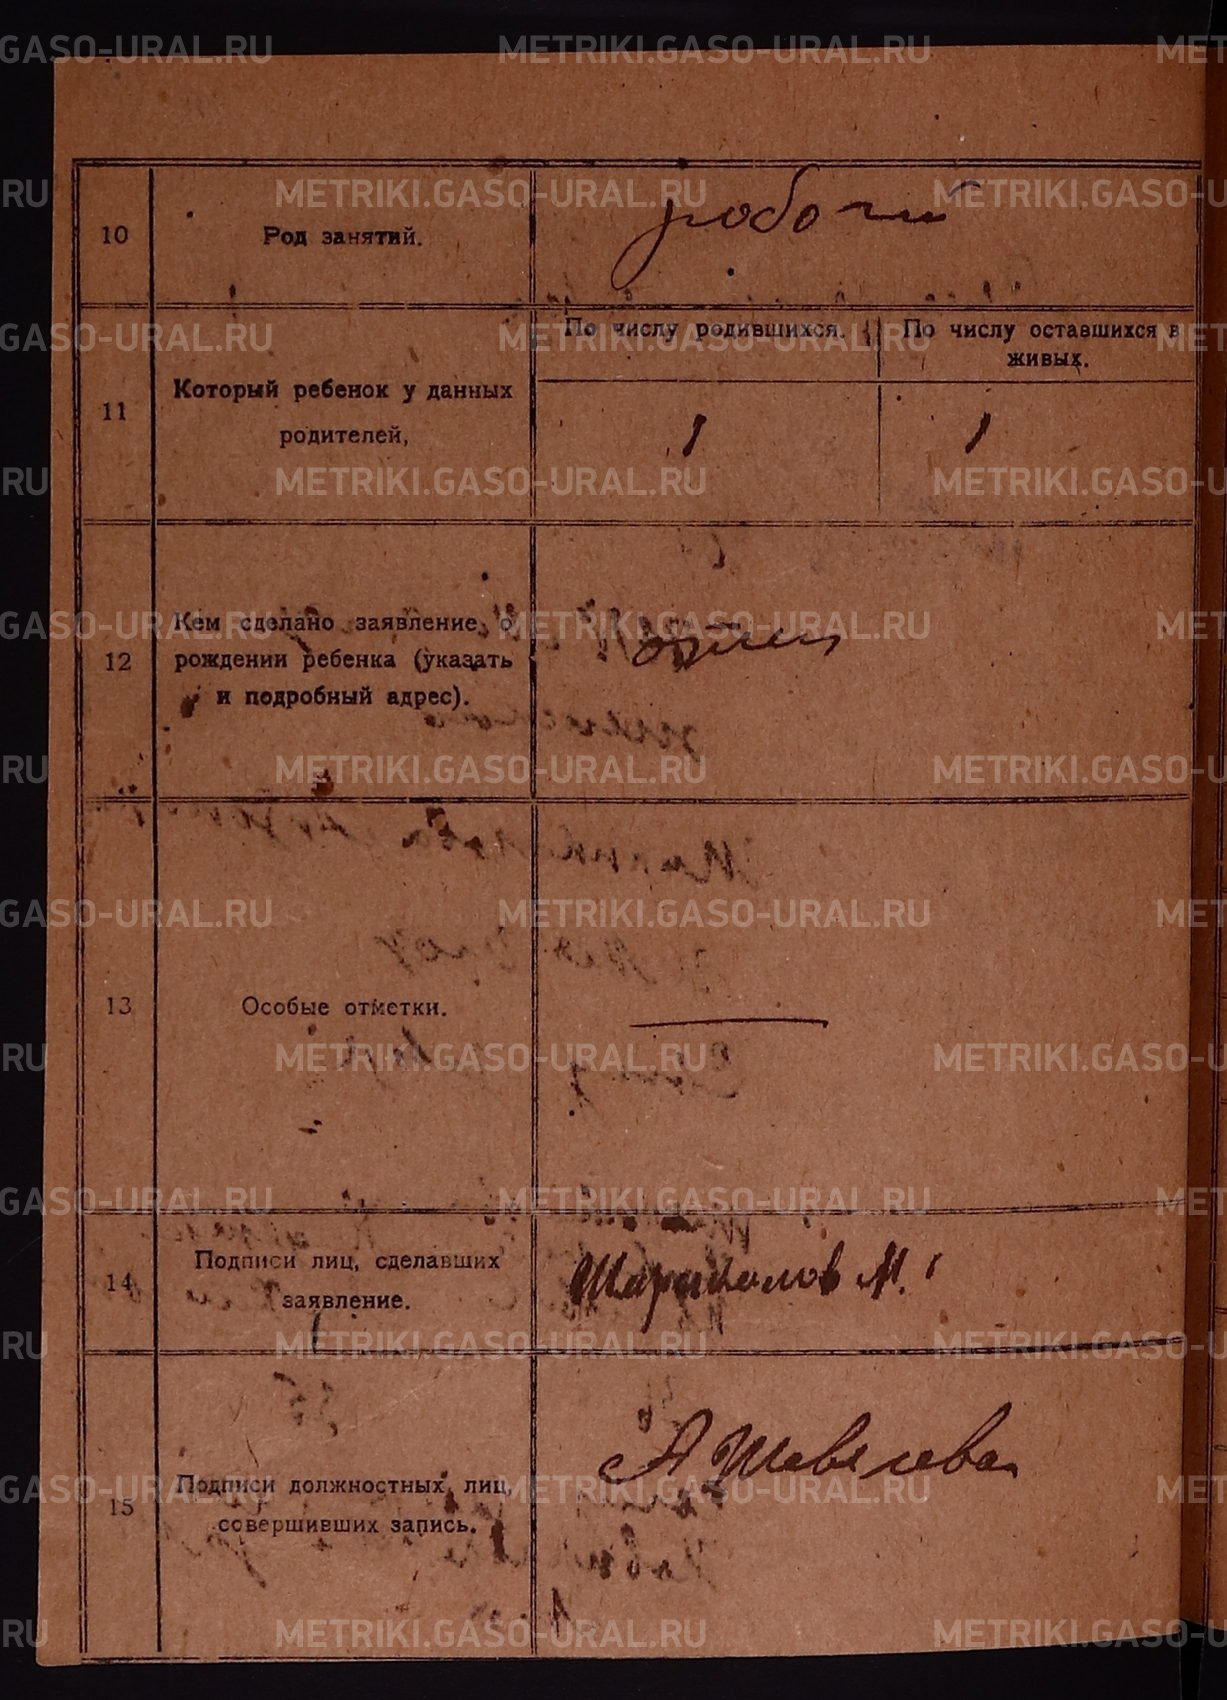 METRIKI.GASO-URAL.RU
10
Род занятий.
робочий
11
Который ребенок у данных
родителей,
По числу родившихся.
1
По числу оставшихся в
живых.
1
12
Кем сделано заявление о
рождении ребенка (указать
и подробный адрес).
отец
13
Особые отметки.
14
Подписи лиц, сделавших
заявление.
М.
15
Подписи должностных лиц,
совершивших запись.
А Шевелева